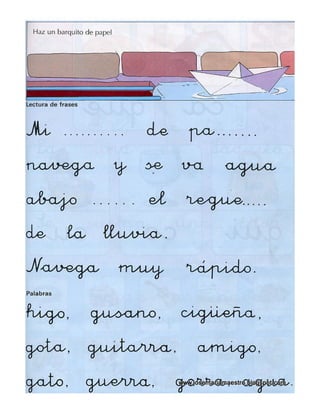 Haz un barquito de papel
Lectura de frases
Mi .......... de pa.......
navega y se va agua
abajo ...... el regue.....
de la lluvia.
Navega muy rápido.
Palabras
higo, gusano, cigüeña,
gota, guitarra, amigo,
gato, guerra, agua.